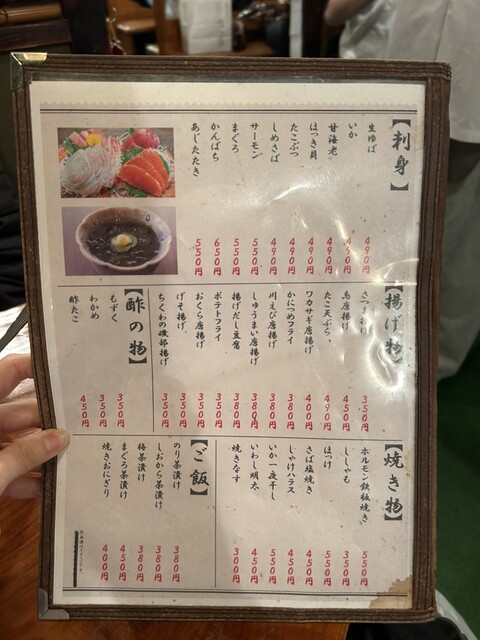 【刺身】
生ゆば 490円
いか 490円
甘海老 490円
はっき貝 490円
たこぶつ 490円
しめさば 490円
サーモン 550円
まぐろ 550円
かんぱち 650円
あじたたき 550円
【揚げ物】
さつま揚げ 350円
鳥唐揚げ 450円
たこ天ぷら 490円
ワカサギ唐揚げ 400円
かにつめフライ 380円
川えび唐揚げ 380円
しゅうまい唐揚げ 380円
揚げだし豆腐 380円
ポテトフライ 350円
おくら唐揚げ 350円
げそ揚げ 350円
ちくわの磯部揚げ 350円
【酢の物】
もずく 350円
わかめ 350円
酢たこ 450円
【焼き物】
ホルモン鉄板焼き 550円
ししゃも 350円
ほっけ 550円
さば塩焼き 450円
しゃけハラス 450円
いか一夜干し 550円
いわし明太 450円
焼きなす 300円
【ご飯】
のり茶漬け 380円
しおから茶漬け 380円
梅茶漬け 380円
まぐろ茶漬け 450円
焼きおにぎり 400円